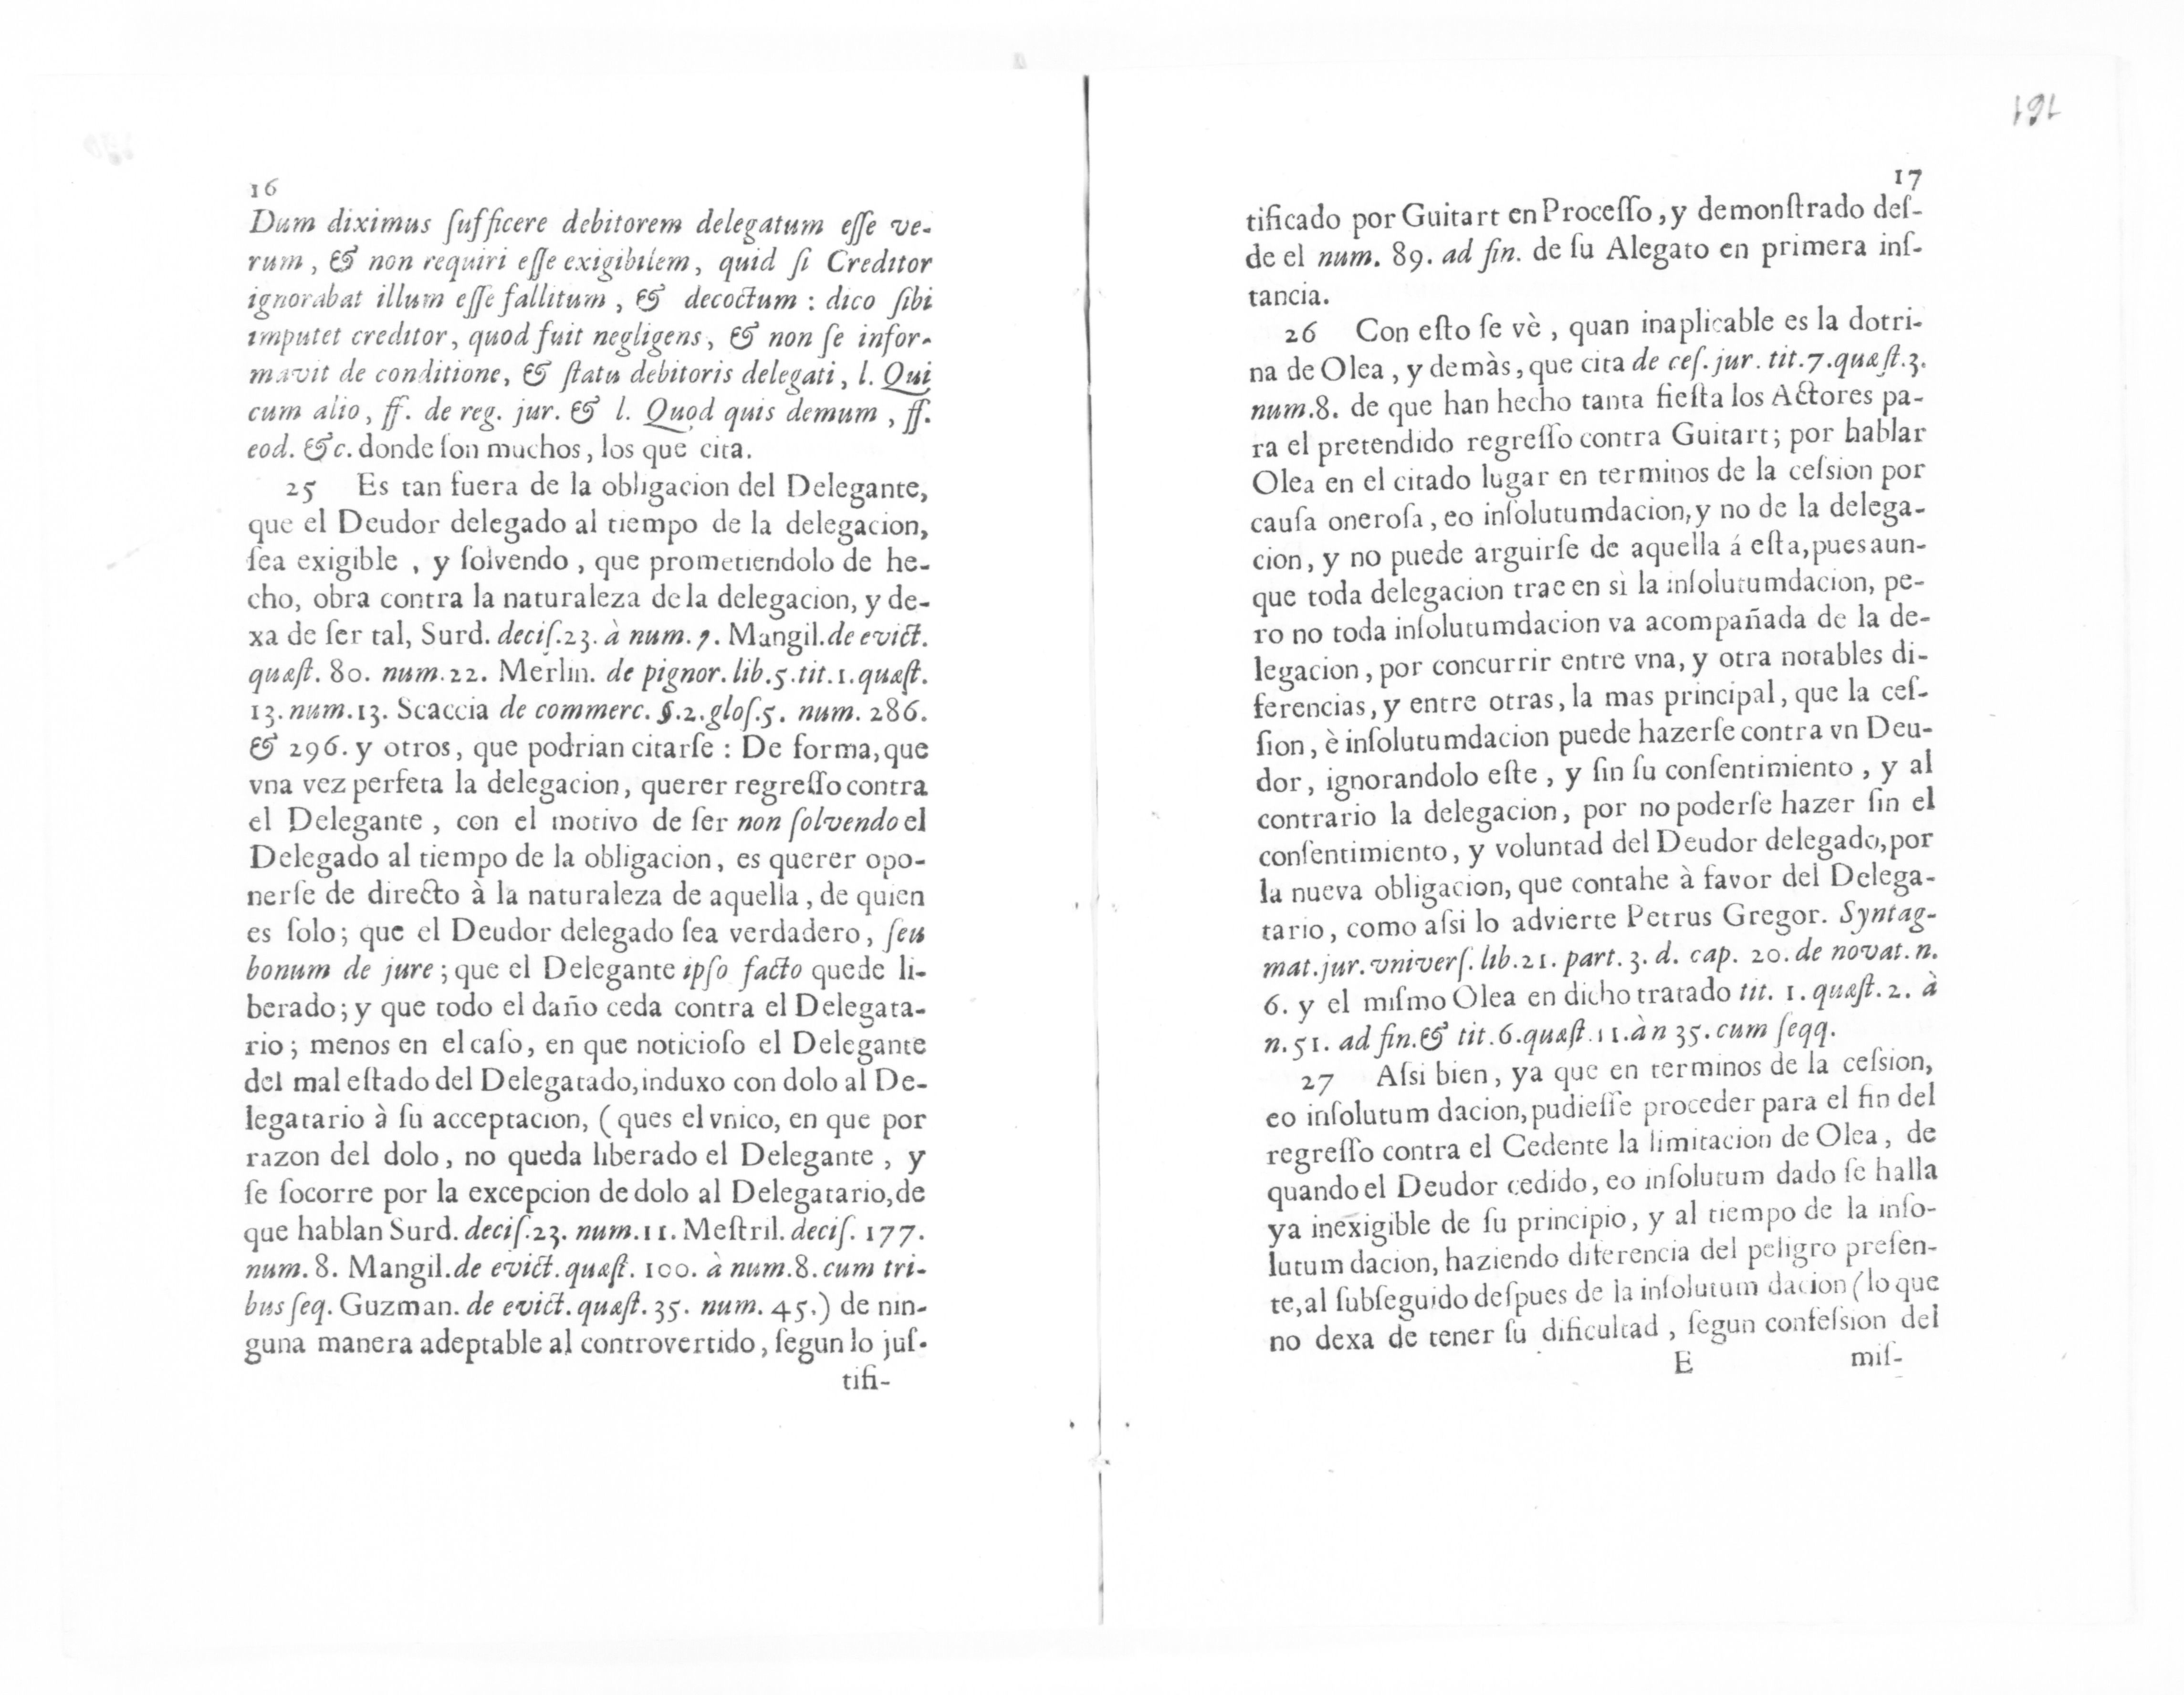 16
Dum diximus ſufficere debitorem delegatum eſſe ve-
rum, & non requiri eſſe exigibilem, quid ſi Creditor
ignorabat illum eſſe fallitum, & decoctum : dico ſibi
imputet creditor, quod fuit negligens, & non ſe infor-
mavit de conditione, & ſtatu debitoris delegati, l. Qui
cum alio, ff. de reg. jur. & l. Quod quis demum, ff.
eod. &c. donde ſon muchos, los que cita.
25 Es tan fuera de la obligacion del Delegante,
que el Deudor delegado al tiempo de la delegacion,
ſea exigible, y ſolvendo, que prometiendolo de he-
cho, obra contra la naturaleza de la delegacion, y de-
xa de ſer tal, Surd. deciſ.23. à num. 7. Mangil. de evict.
quæſt. 80. num.22. Merlin. de pignor. lib.5.tit.1.quæſt.
13.num.13. Scaccia de commerc. §.2.gloſ.5. num. 286.
& 296. y otros, que podrian citarſe : De forma, que
vna vez perfeta la delegacion, querer regreſſo contra
el Delegante, con el motivo de ſer non ſolvendo el
Delegado al tiempo de la obligacion, es querer opo-
nerſe de directo à la naturaleza de aquella, de quien
es ſolo; que el Deudor delegado ſea verdadero, ſeu
bonum de jure; que el Delegante ipſo facto quede li-
berado; y que todo el daño ceda contra el Delegata-
rio; menos en el caſo, en que noticioſo el Delegante
del mal eſtado del Delegatado, induxo con dolo al De-
legatario à ſu acceptacion, (ques el vnico, en que por
razon del dolo, no queda liberado el Delegante, y
ſe ſocorre por la excepcion de dolo al Delegatario, de
que hablan Surd. deciſ.23. num.11. Meſtril. deciſ. 177.
num. 8. Mangil. de evict. quæſt. 100. à num.8. cum tri-
bus ſeq. Guzman. de evict. quæſt. 35. num. 45.) de nin-
guna manera adeptable al controvertido, ſegun lo juſ-
tifi-
161
17
tificado por Guitart en Proceſſo, y demonſtrado deſ-
de el num. 89. ad fin. de ſu Alegato en primera inſ-
tancia.
26 Con eſto ſe vè, quan inaplicable es la dotri-
na de Olea, y demàs, que cita de ceſ. jur. tit.7.quæſt.3.
num.8. de que han hecho tanta fieſta los Actores pa-
ra el pretendido regreſſo contra Guitart; por hablar
Olea en el citado lugar en terminos de la ceſsion por
cauſa oneroſa, eo inſolutumdacion, y no de la delega-
cion, y no puede arguirſe de aquella á eſta, pues aun-
que toda delegacion trae en sì la inſolutumdacion, pe-
ro no toda inſolutumdacion va acompañada de la de-
legacion, por concurrir entre vna, y otra notables di-
ferencias, y entre otras, la mas principal, que la ceſ-
ſion, è inſolutumdacion puede hazerſe contra vn Deu-
dor, ignorandolo eſte, y ſin ſu conſentimiento, y al
contrario la delegacion, por no poderſe hazer ſin el
conſentimiento, y voluntad del Deudor delegado, por
la nueva obligacion, que contahe à favor del Delega-
tario, como aſsi lo advierte Petrus Gregor. Syntag-
mat. jur. vniverſ. lib.21. part. 3. d. cap. 20. de novat. n.
6. y el miſmo Olea en dicho tratado tit. 1. quæſt. 2. à
n. 51. ad fin. & tit. 6. quæſt. 11. à n 35. cum ſeqq.
27 Aſsi bien, ya que en terminos de la ceſsion,
eo inſolutum dacion, pudieſſe proceder para el fin del
regreſſo contra el Cedente la limitacion de Olea, de
quando el Deudor cedido, eo inſolutum dado ſe halla
ya inexigible de ſu principio, y al tiempo de la inſo-
lutum dacion, haziendo diferencia del peligro preſen-
te, al ſubſeguido deſpues de la inſolutum dacion (lo que
no dexa de tener ſu dificultad, ſegun conſeſsion del
E
miſ-